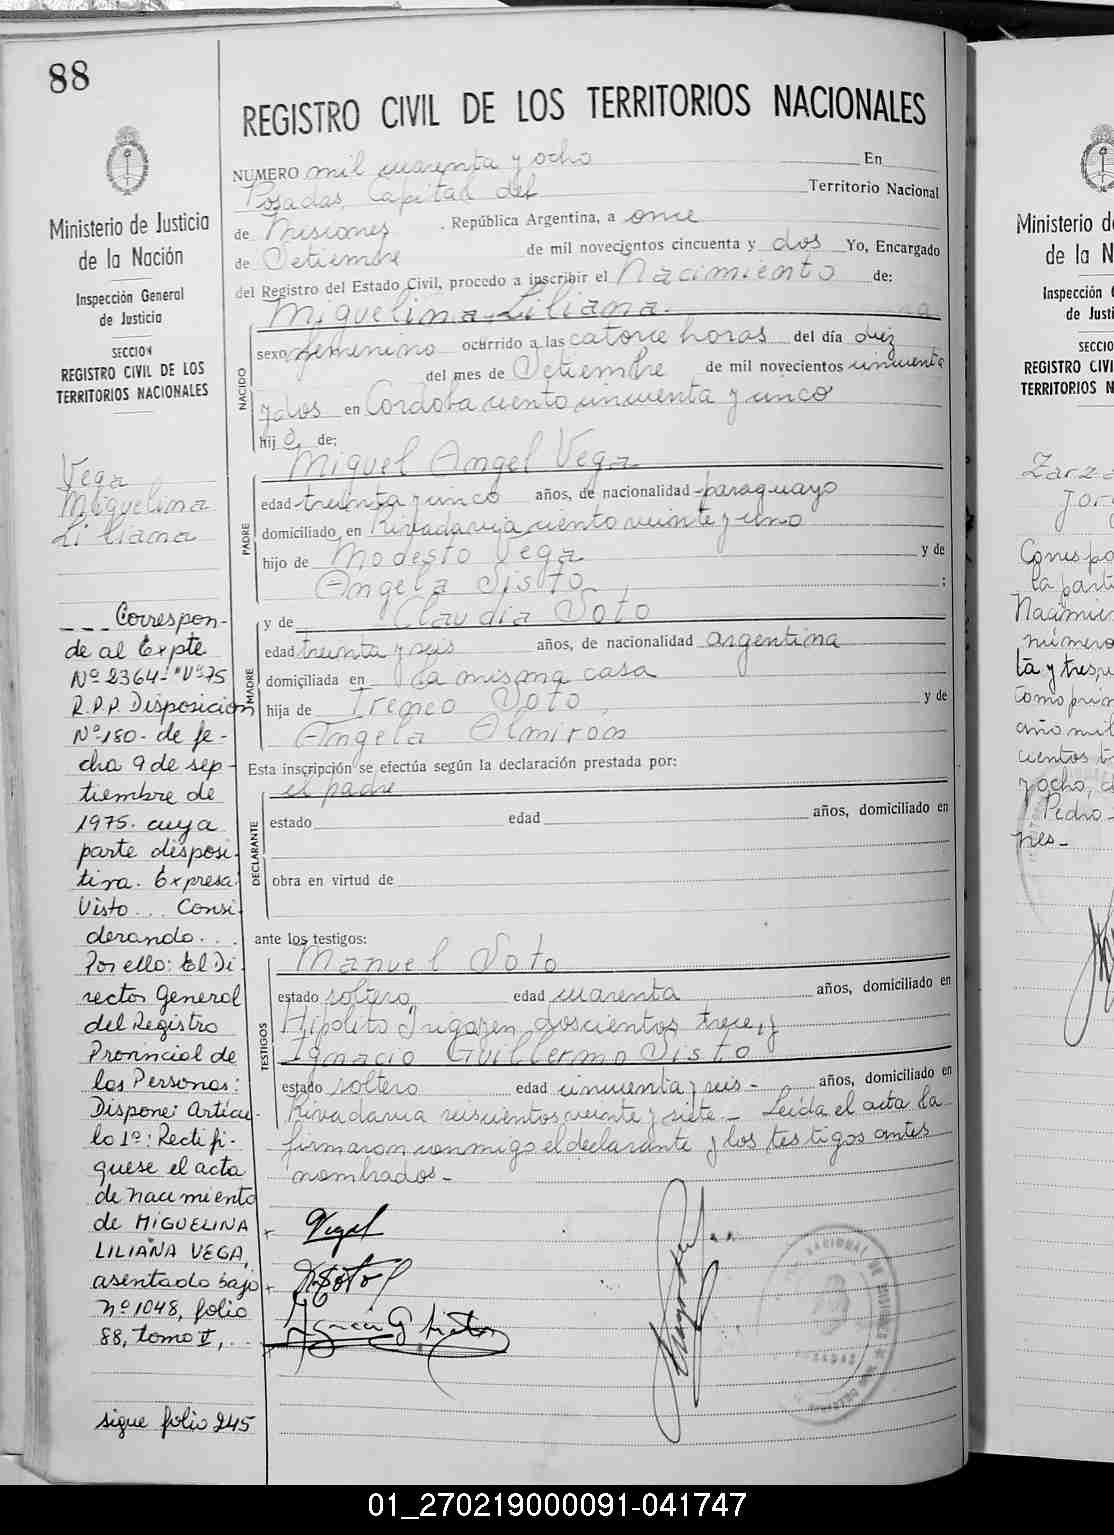 88
Ministerio de Justicia
de la Nación
Inspección General
de Justicia
SECCION
REGISTRO CIVIL DE LOS
TERRITORIOS NACIONALES
Vega
Miguelina
Liliana
___ Correspon-
de al Expte
Nº 2364-"V"75
R.P.P. Disposición
Nº 180- de fe-
cha 9 de sep-
tiembre de
1975. cuya
parte disposi-
tiva. Expresa:
Visto... Consi-
derando...
Por ello: El Di-
rector General
del Registro
Provincial de
las Personas:
Dispone: Artícu-
lo 1º: Rectifi-
quese el acta
de nacimiento
de MIGUELINA
LILIANA VEGA,
asentado bajo
nº 1048, folio
88, tomo II,...
sigue folio 245
REGISTRO CIVIL DE LOS TERRITORIOS NACIONALES
NUMERO mil cuarenta y ocho En
Posadas, Capital del Territorio Nacional
de Misiones . República Argentina, a once
de Setiembre de mil novecientos cincuenta y dos Yo, Encargado
del Registro del Estado Civil, procedo a inscribir el Nacimiento de:
Miguelina Liliana.
NACIDO
sexo femenino ocurrido a las catorce horas del día diez
del mes de Setiembre de mil novecientos cincuenta
y dos en Cordoba ciento cincuenta y cinco
hij a de:
PADRE
Miguel Angel Vega
edad treinta y cinco años, de nacionalidad paraguayo
domiciliado en Rivadavia ciento veinte y uno
hijo de Modesto Vega y de
Angela Sisto ;
MADRE
y de Claudia Soto
edad treinta y seis años, de nacionalidad argentina
domiciliada en la misma casa
hija de Ireneo Soto, y de
Angela Almirón
Esta inscripción se efectúa según la declaración prestada por:
el padre
DECLARANTE
estado edad años, domiciliado en
obra en virtud de
ante los testigos:
TESTIGOS
Manuel Soto
estado soltero edad cuarenta años, domiciliado en
Hipólito Irigoyen doscientos trece, y
Ignacio Guillermo Sisto
estado soltero edad cincuenta y seis - años, domiciliado en
Rivadavia seiscientos veinte y siete - Leída el acta la
firmaron conmigo el declarante y los testigos antes
nombrados -
Zarza
Ministerio d
de la N
Inspección
de Justi
SECCIO
REGISTRO CIVI
TERRITORIOS N
01_270219000091-041747